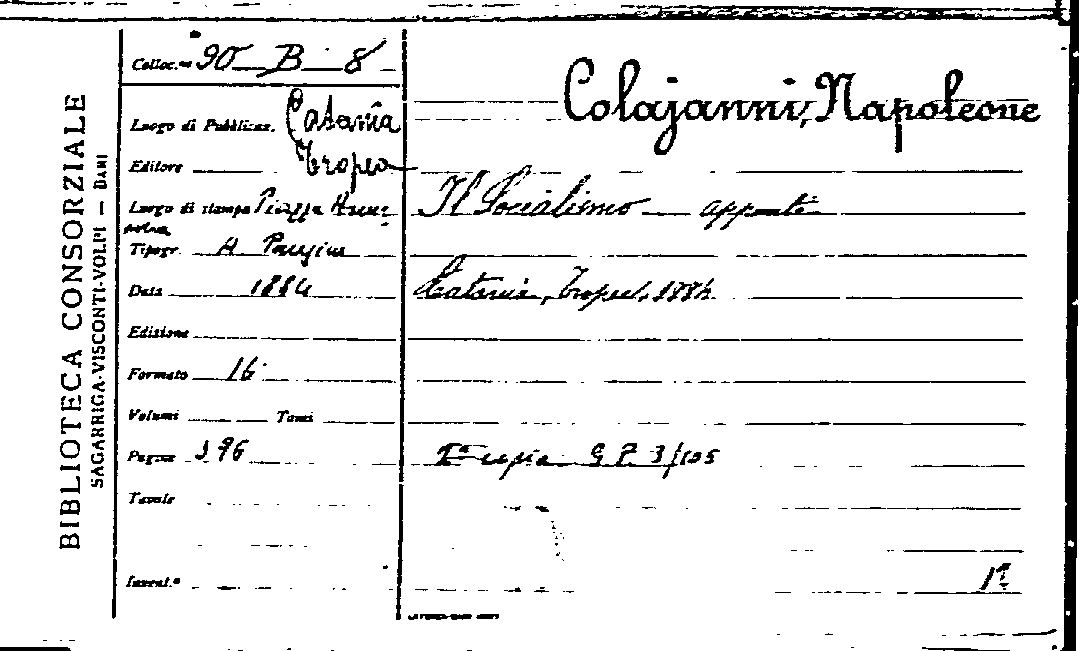 BIBLIOTECA CONSORZIALE
SAGARRIGA-VISCONTI-VOLPI — BARI
Colloc.ne 90 B 8
Luogo di Pubblicaz. Catania
Editore Tropea
Luogo di stampa Piazza
Tipogr.
Data 1884
Edizione
Formato 16
Volumi Tomi
Pagine 396
Tavole
Invent.o
Colajanni, Napoleone
Il Socialismo appunti
Catania, Tropea, 1884
IIa copia G P. 3/105